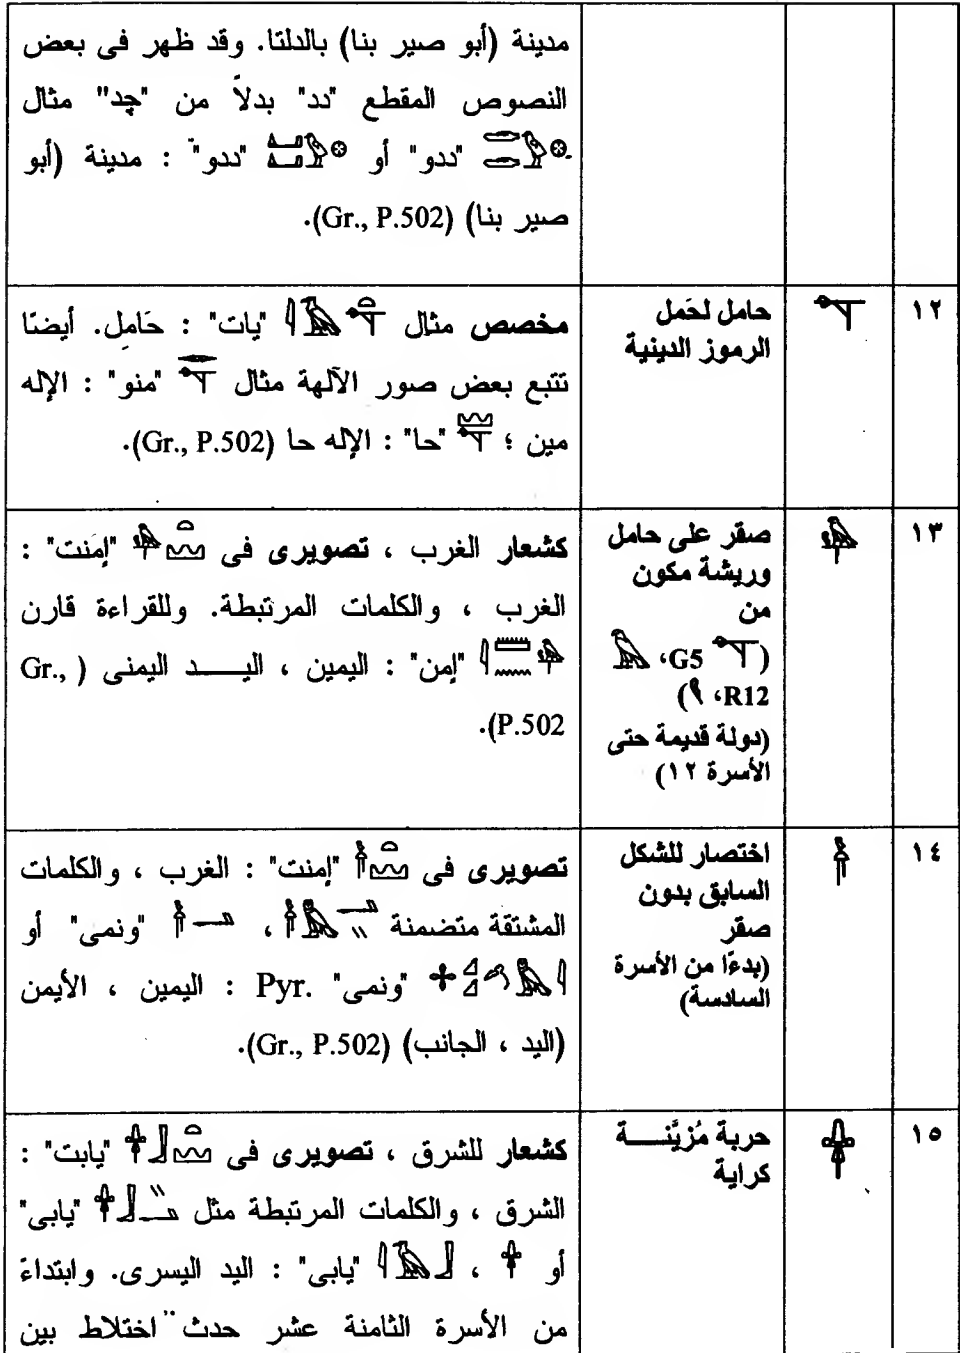 مدينة (أبو صير بنا) بالدلتا. وقد ظهر فى بعض
النصوص المقطع "دد" بدلاً من "چد" مثال
"ددو" أو "ددو" : مدينة (أبو
صير بنا) (Gr., P.502).
١٢
حامل لحَمل
الرموز الدينية
مخصص مثال "يات" : حَامِل. أيضًا
تتبع بعض صور الآلهة مثال "منو" : الإله
مين ؛ "حا" : الإله حا (Gr., P.502).
١٣
صقر على حامل
وريشة مكون
من
( G5، 
R12، )
(دولة قديمة حتى
الأسرة ١٢)
كشعار الغرب ، تصويرى فى "إمَنت" :
الغرب ، والكلمات المرتبطة. وللقراءة قارن
"إمن" : اليمين ، اليـــد اليمنى (Gr.,
P.502).
١٤
اختصار للشكل
السابق بدون
صقر
(بدءًا من الأسرة
السادسة)
تصويرى فى "إمنت" : الغرب ، والكلمات
المشتقة متضمنة ، "ونمى" أو
"ونمى" Pyr. : اليمين ، الأيمن
(اليد ، الجانب) (Gr., P.502).
١٥
حربة مُزيَّنـــة
كراية
كشعار للشرق ، تصويرى فى "يابت" :
الشرق ، والكلمات المرتبطة مثل "يابى"
أو ، "يابى" : اليد اليسرى. وابتداءً
من الأسرة الثامنة عشر حدث اختلاط بين